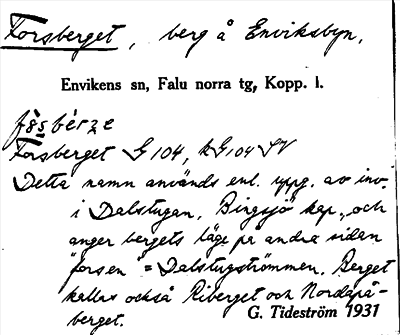 Forsberget, berg å Enviksbyn,
Envikens sn, Falu norra tg, Kopp. l.
Forsberget G 104, kG 104 SV
Detta namn användes enl. uppg. av inv.
i Dalstugan, Bingsjö kap., och
anger bergets läge på andra sidan
"forsen" = Dalstugströmmen. Berget
kallas också Riberget och Nordspå-
berget.
G. Tideström 1931